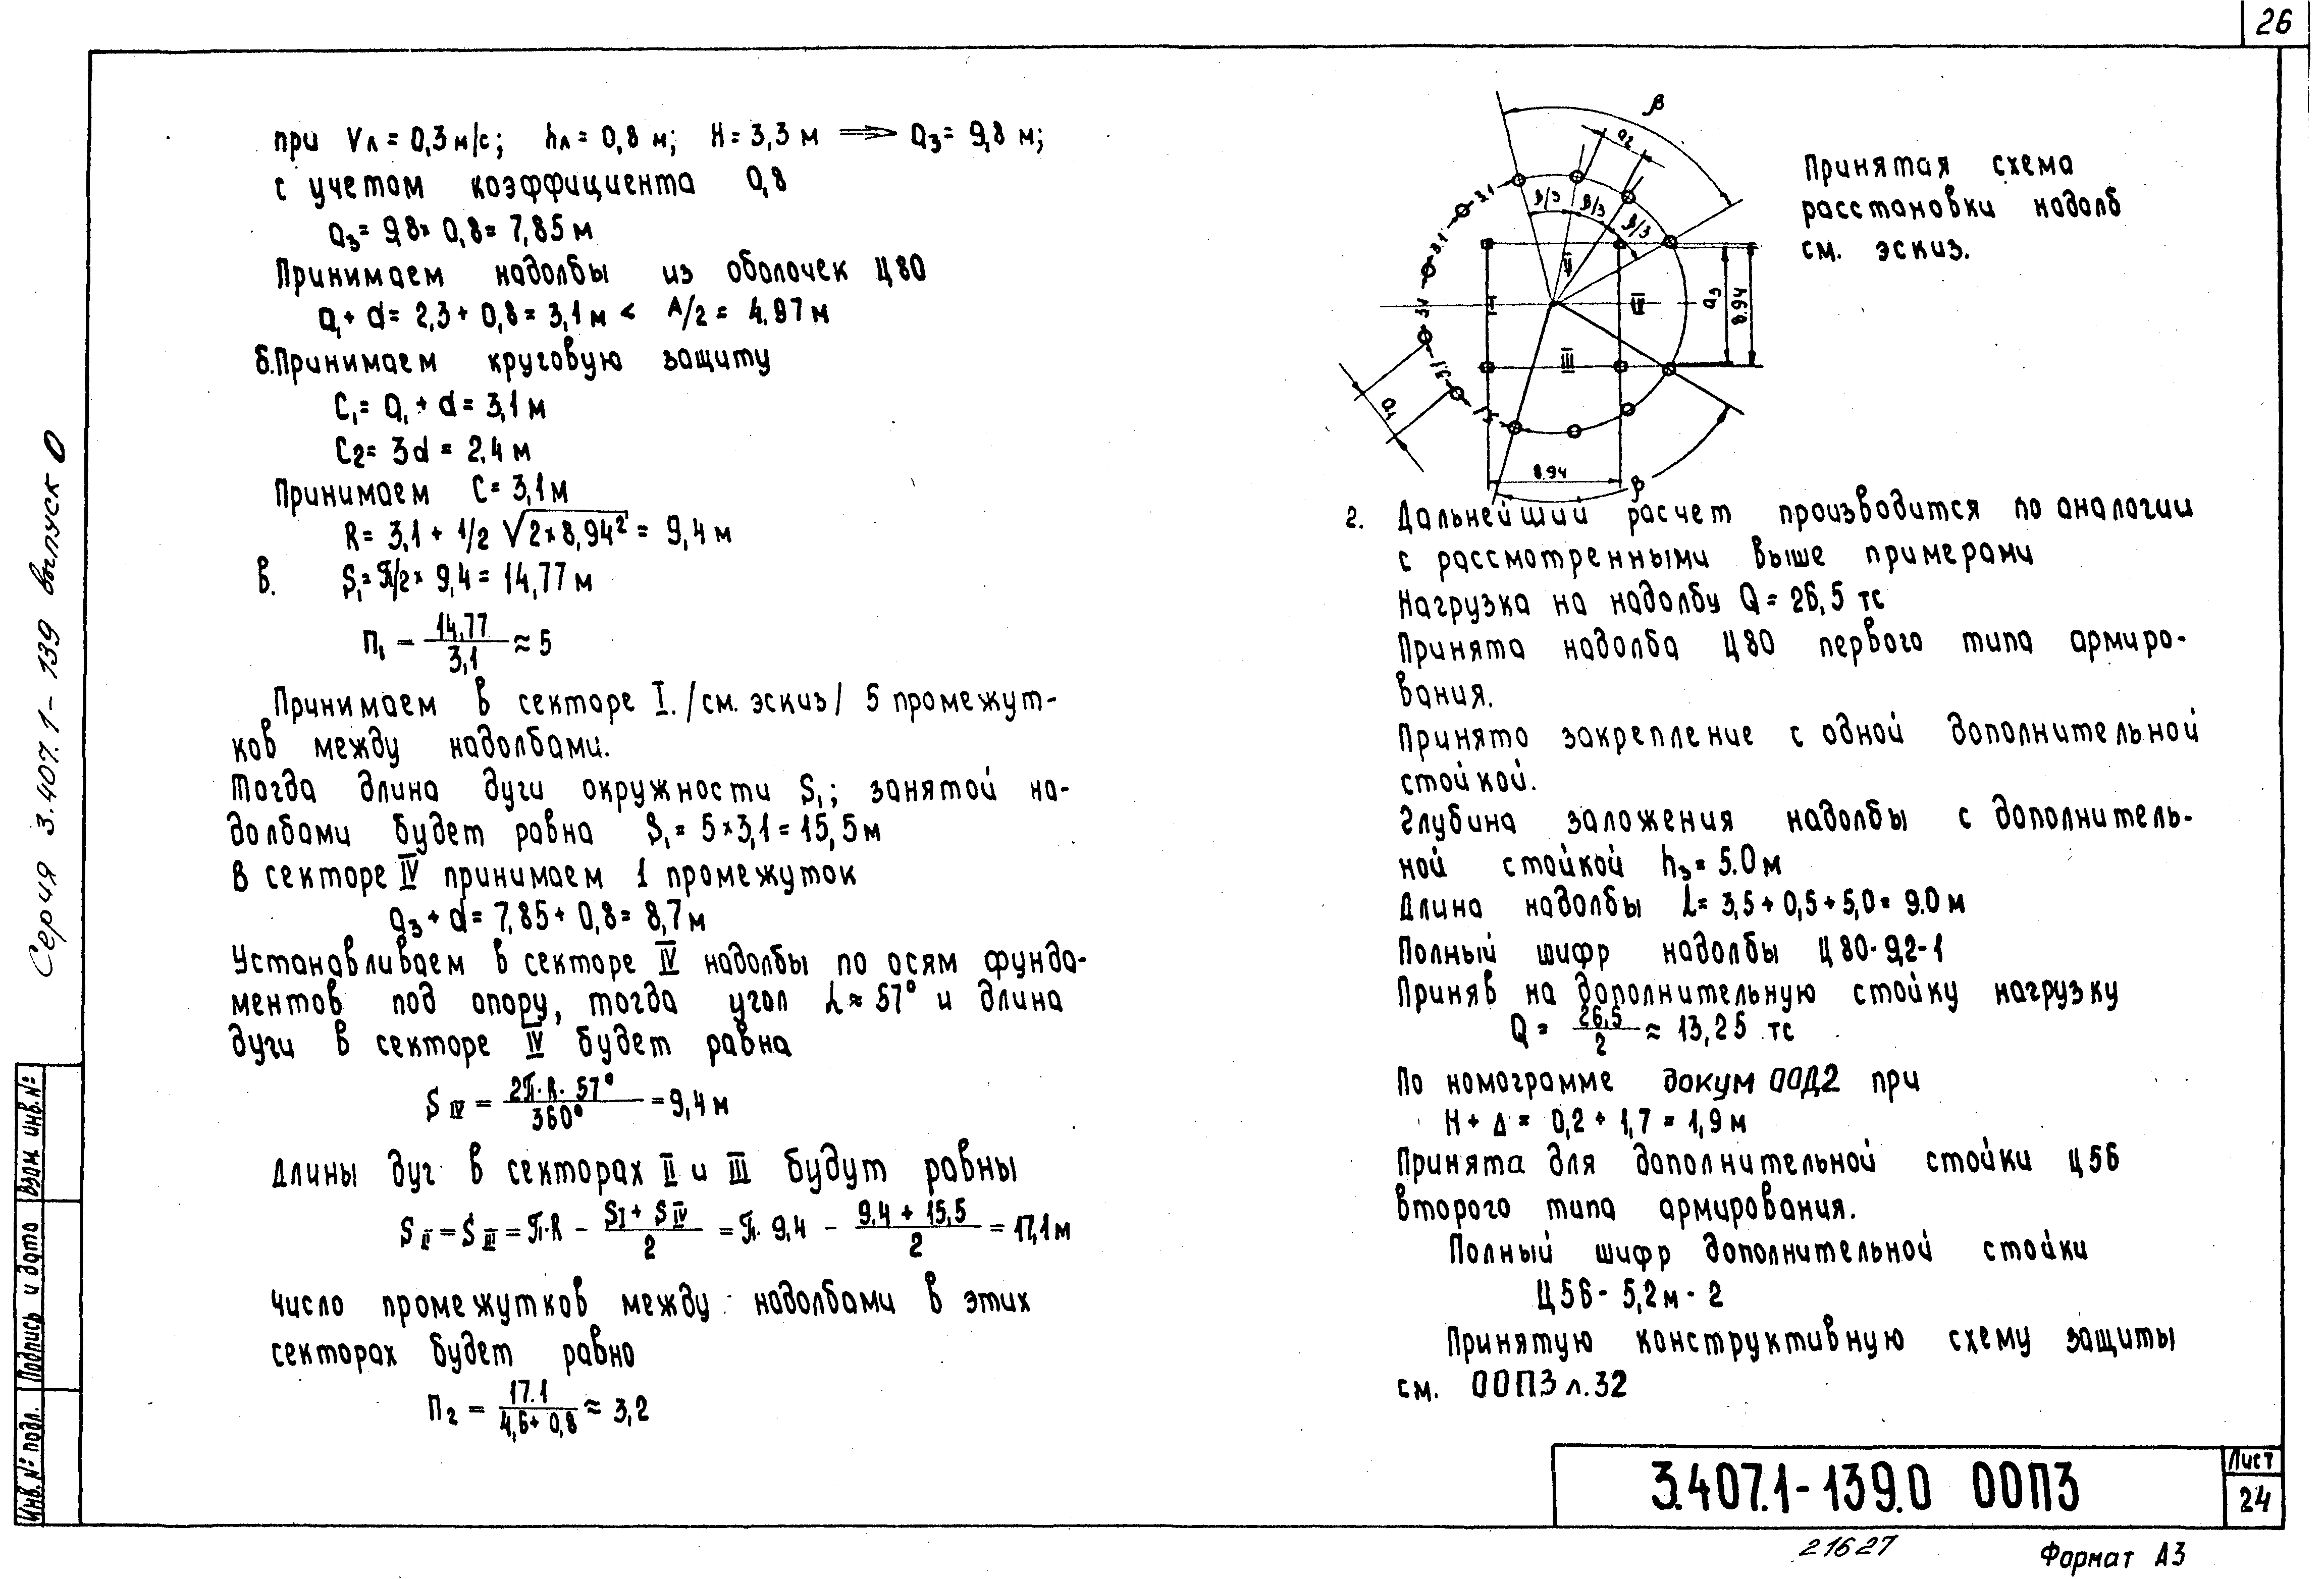 26
при Vл = 0,3 м/с; hл = 0,8 м; H = 3,3 м ⟹ a₃ = 9,8 м;
с учетом коэффициента 0,8
a₃ = 9,8 × 0,8 = 7,85 м
Принимаем надолбы из оболочек Ц80
a₁ + d = 2,3 + 0,8 = 3,1 м < A/2 = 4,97 м
б. Принимаем круговую защиту
C₁ = a₁ + d = 3,1 м
C₂ = 3d = 2,4 м
Принимаем C = 3,1 м
R = 3,1 + 1/2 √2×8,94² = 9,4 м
в. S₁ = π/2 × 9,4 = 14,77 м
п₁ = 14,77 / 3,1 ≈ 5
Принимаем в секторе I. /см. эскиз/ 5 промежут-
ков между надолбами.
Тогда длина дуги окружности S₁; занятой на-
долбами будет равна S₁ = 5 × 3,1 = 15,5 м
в секторе IV принимаем 1 промежуток
a₃ + d = 7,85 + 0,8 = 8,7 м
Устанавливаем в секторе IV надолбы по осям фунда-
ментов под опору, тогда угол α ≈ 57° и длина
дуги в секторе IV будет равна
S IV = 2π·R·57° / 360° = 9,4 м
Длины дуг в секторах II и III будут равны
S II = S III = π·R - (S I + S IV) / 2 = π·9,4 - (9,4 + 15,5) / 2 = 17,1 м
Число промежутков между надолбами в этих
секторах будет равно
п₂ = 17.1 / (4,6 + 0,8) ≈ 3,2
β
a₂
β/3 β/3 β/3
3.1 3.1 3.1 3.1 3.1
I II III IV
a₁
a₃
8.94
8.94
β
Принятая схема
расстановки надолб
см. эскиз.
2. Дальнейший расчет производится по аналогии
с рассмотренными выше примерами
Нагрузка на надолбу Q = 26,5 тс
Принята надолба Ц80 первого типа армиро-
вания.
Принято закрепление с одной дополнительной
стойкой.
Глубина заложения надолбы с дополнитель-
ной стойкой h₃ = 5.0 м
Длина надолбы L = 3,5 + 0,5 + 5,0 = 9.0 м
Полный шифр надолбы Ц80-9,2-1
Приняв на дополнительную стойку нагрузку
Q = 26,5 / 2 ≈ 13,25 тс
По номограмме докум 00Д2 при
H + Δ = 0,2 + 1,7 = 1,9 м
Принята для дополнительной стойки Ц56
второго типа армирования.
Полный шифр дополнительной стойки
Ц56 - 5,2м - 2
Принятую конструктивную схему защиты
см. 00ПЗ л. 32
Серия 3.407.1-139 выпуск 0
Инв. № подл. Подпись и дата Взам. инв. №
3.407.1-139.0 00ПЗ
Лист
24
21627
Формат А3